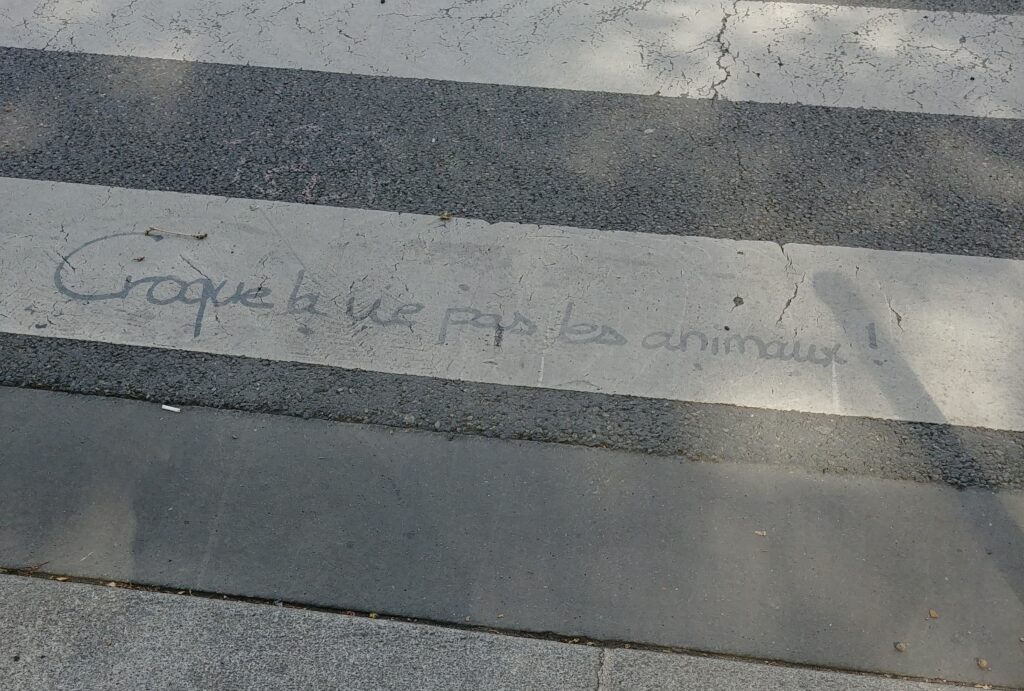 Croque la vie pas les animaux !